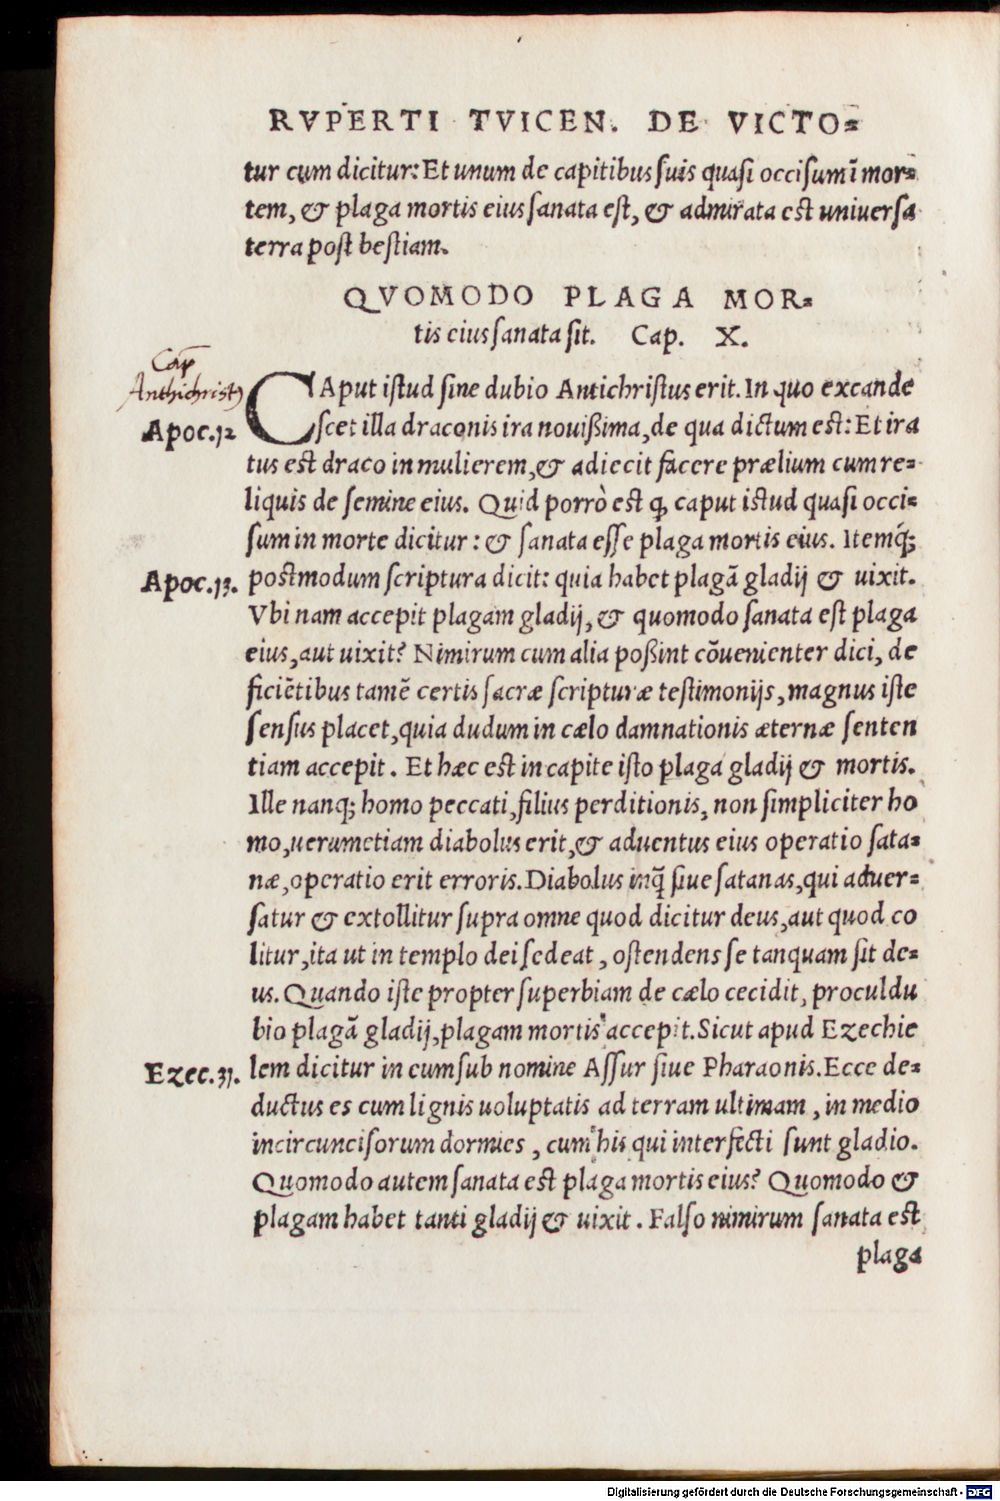 RVPERTI TVICEN. DE VICTO=
tur cum dicitur: Et unum de capitibus suis quasi occisum ī mor=
tem, & plaga mortis eius sanata est, & admirata est uniuersa
terra post bestiam.
QVOMODO PLAGA MOR=
tis eius sanata sit. Cap. X.
Cap
Anthichristꝰ
CAput istud sine dubio Antichristus erit. In quo excande
Apoc.12
scet illa draconis ira nouißima, de qua dictum est: Et ira
tus est draco in mulierem, & adiecit facere prælium cum re=
liquis de semine eius. Quid porrò est ꝙ caput istud quasi occi=
sum in morte dicitur: & sanata esse plaga mortis eius. Itemq́;
Apoc.13.
postmodum scriptura dicit: quia habet plagā gladij & uixit.
Vbi nam accepit plagam gladij, & quomodo sanata est plaga
eius, aut uixit? Nimirum cum alia poßint cōuenienter dici, de
ficiētibus tamē certis sacræ scripturæ testimonijs, magnus iste
sensus placet, quia dudum in cælo damnationis æternæ senten
tiam accepit. Et hæc est in capite isto plaga gladij & mortis.
Ille nanq; homo peccati, filius perditionis, non simpliciter ho
mo, uerumetiam diabolus erit, & aduentus eius operatio sata=
næ, operatio erit erroris. Diabolus inq̄ siue satanas, qui aduer=
satur & extollitur supra omne quod dicitur deus, aut quod co
litur, ita ut in templo dei sedeat, ostendens se tanquam sit de=
us. Quando iste propter superbiam de cælo cecidit, proculdu
bio plagā gladij, plagam mortis accepit. Sicut apud Ezechie
Ezec.31.
lem dicitur in eum sub nomine Assur siue Pharaonis. Ecce de=
ductus es cum lignis uoluptatis ad terram ultimam, in medio
incircuncisorum dormies, cum his qui interfecti sunt gladio.
Quomodo autem sanata est plaga mortis eius? Quomodo &
plagam habet tanti gladij & uixit. Falso nimirum sanata est
plaga
Digitalisierung gefördert durch die Deutsche Forschungsgemeinschaft - DFG